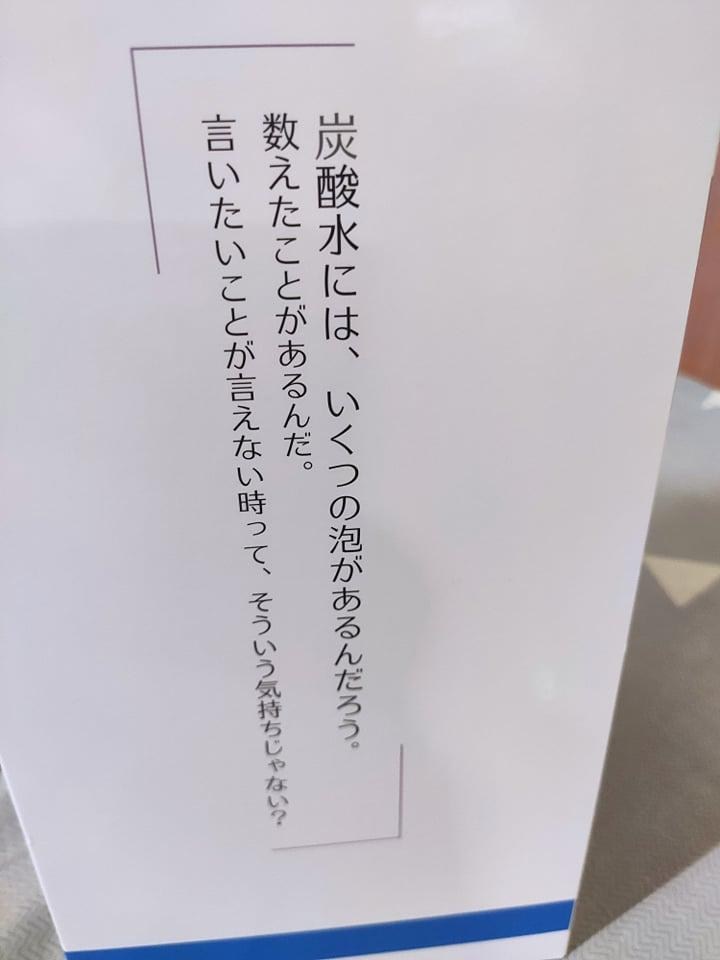 炭酸水には、いくつの泡があるんだろう。
数えたことがあるんだ。
言いたいことが言えない時って、そういう気持ちじゃない?